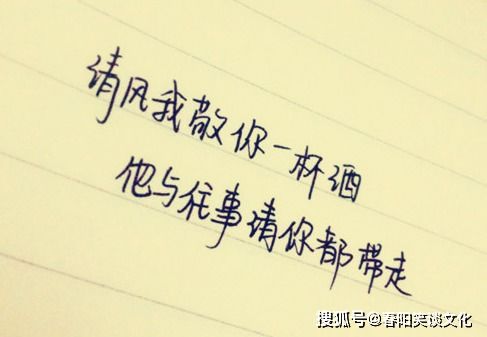 请风我敬你一杯酒
他与往事请你都带走
搜狐号@春阳笑谈文化